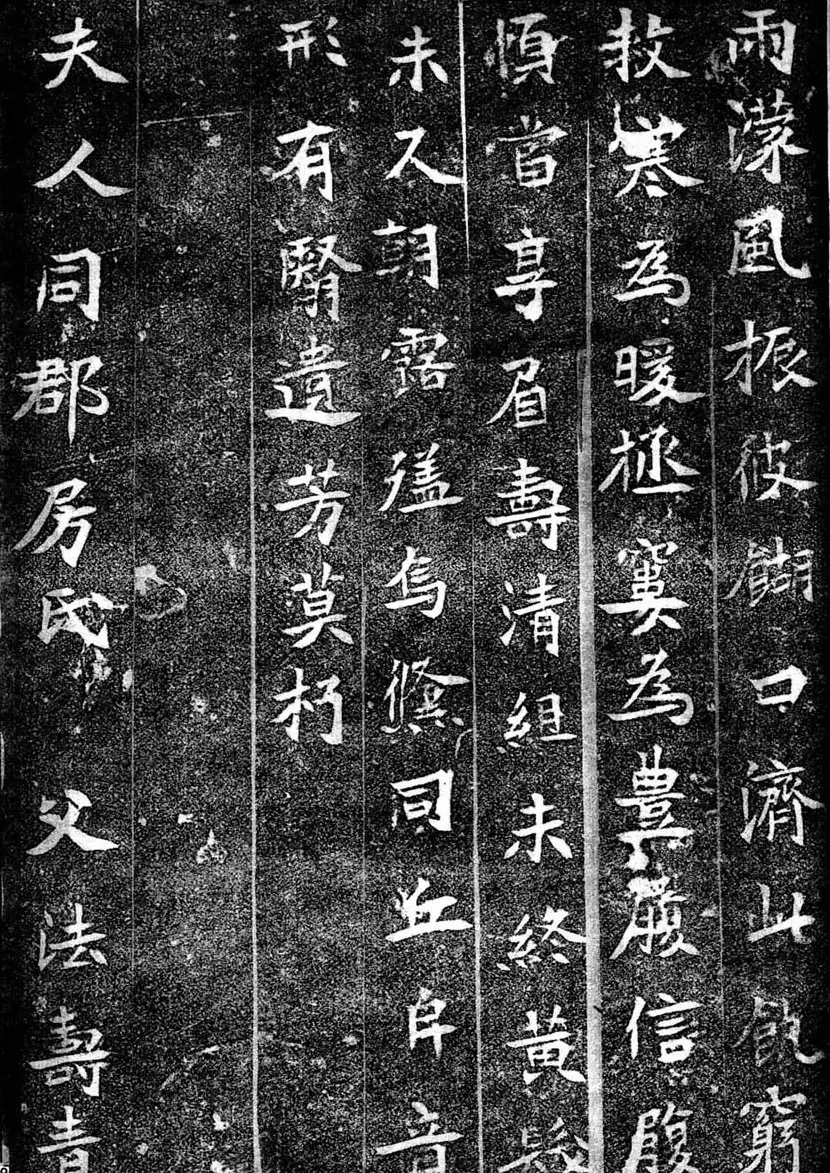 雨濛風振彼餬口濟此飢窮
救寒為暖拯窶為豊履信履
慎當享眉壽清組未終黃髮
未久朝露焉儵同丘𨸏音
形有翳遺芳莫朽
夫人同郡房氏 父法壽青